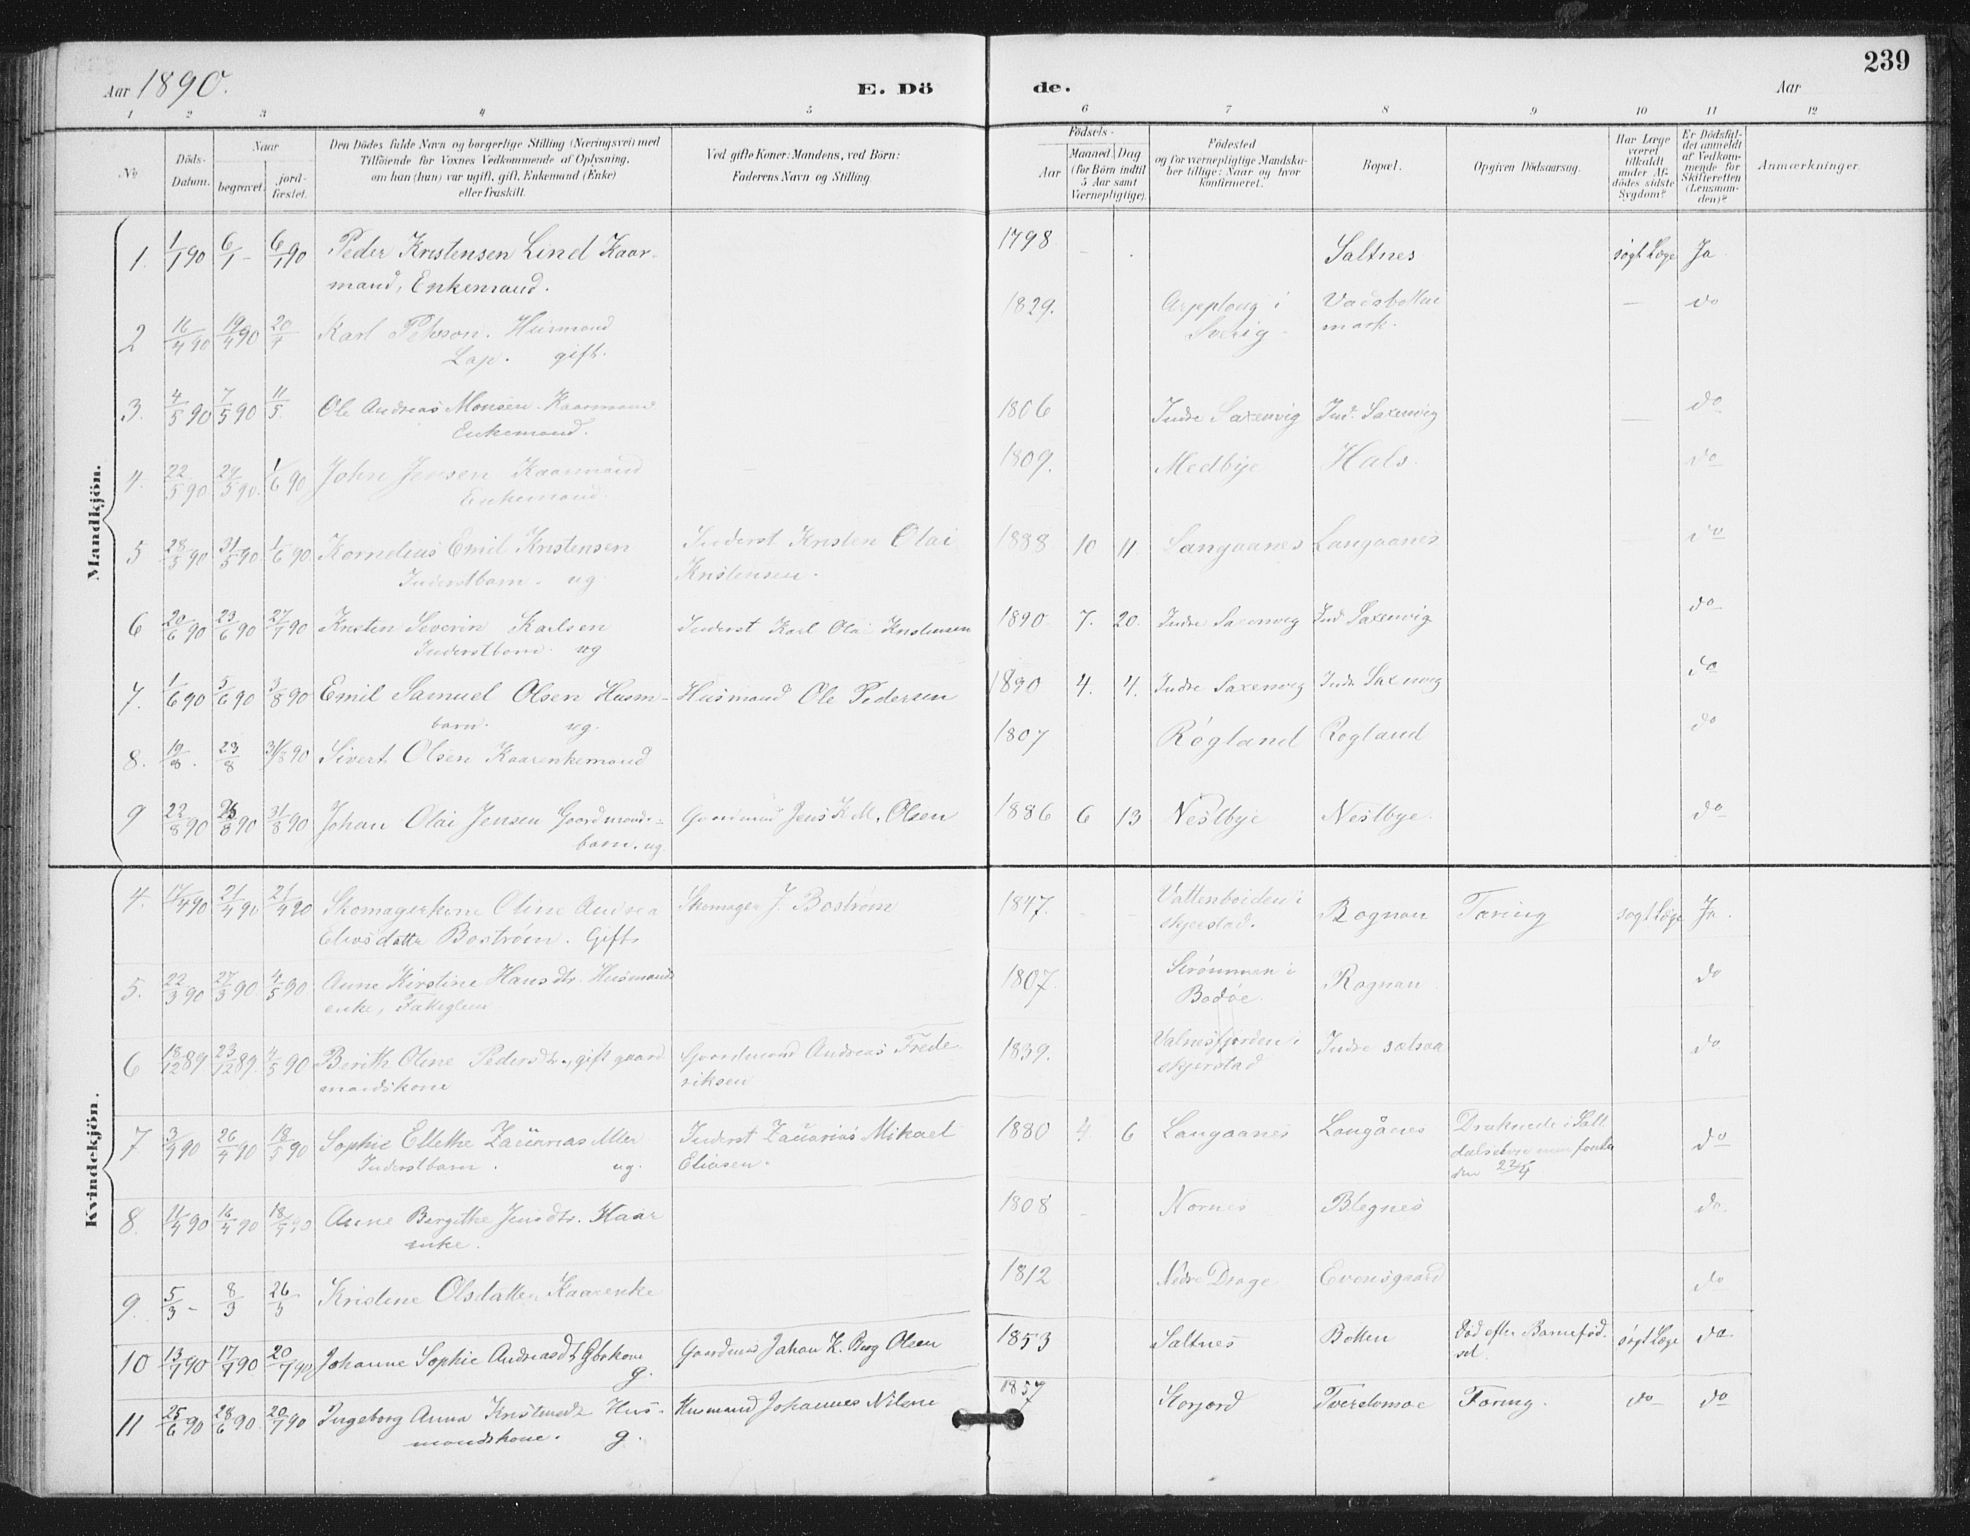 239
Aar 1890.
E. Dö
de.
Aar
1 2 3 4 5 6 7 8 9 10 11 12
№
Döds-
Datum.
Naar
begravet.
jord-
fæstet.
Den Dödes fulde Navn og borgerlige Stilling (Næringsvei) med
Tilföiende for Voxnes Vedkommende af Oplysning,
om han (hun) var ugift, gift, Enkemand (Enke)
eller fraskilt.
Ved gifte Koner: Mandens, ved Börn:
Faderens Navn og Stilling.
Födsels-
Aar
Maaned
Dag
(for Börn indtil
5 Aar samt
Værnepligtige).
Födested
og for værnepligtige Mandska-
ber tillige: Naar og hvor
konfirmeret.
Bopæl.
Opgiven Dödsaarsag.
Har Læge
været
tilkaldt
under Af-
dödes sidste
Sygdom?
Er Dödsfal-
det anmeldt
af Vedkom-
mende for
Skifteretten
(Lensman-
den)?
Anmærkninger.
Mandkjön.
1. 1/1 90 6/1 - 6/1 90 Peder Kristensen Lind Kaar- 1798 - Saltnes søgt Læge Ja.
mand, Enkemand.
2 16/4 90 19/4 90 20/4 Karl Petvson. Husmand 1829. Arjeploug i do
Lap. gift. Sverig mark.
3. 4/5 90 7/5 90 11/5 Ole Andreas Monsen Kaarmand 1806 Indre Saxenvig Ind. Saxenvig do
Enkemand.
4. 22/5 90 27/5 90. 1/6 90 John Jensen Kaarmand 1809. Medbye Hals. do
Enkemand.
5 28/5 90 31/5 90 1/6 90. Kornelius Emil Kristensen Inderst Kristen Olai 1888 10 11. Langaanes Langaanes do
Inderstbarn. ug. Kristensen.
6 20/6 90 23/6 90 27/7 90 Kristen Severin Karlsen Inderst Karl Olai Kristensen 1890 7. 20. Indre Saxenvig Ind Saxenvig do
Inderstbarn. ug
7. 1/6 90 5/6 90 3/8 90 Emil Samuel Olsen Husm- Husmand Ole Pedersen 1890 4. 4. Indre Saxenvig Indr Saxenvig do
barn. ug.
8. 19/8. 23/8 31/8 90 Sivert Olsen Kaarenkemand 1807 Røgland Røgland do
9 22/8 90 26/8 90 31/8 90 Johan Olai Jensen Gaardmands- Gaardmand Jens K. M. Olsen 1886 6 13 Nestbye Nestbye. do
barn. ug.
Kvindekjön.
4. 17/4 90 21/4 90 21/4 90 Skomagerkone Oline Andrea Skomager J. Boström 1847. Vattenbøiden i Rognan Tæring søgt Læge Ja.
Eliasdatter Boström. Gift. Skjerstad.
5. 22/3 90 27/3 90. 4/5 90 Anne Kirstine Hansdtr. Husmands 1807. Strømmen i Rognan do
enke, Fattiglem Bodøe.
6 18/12 89 23/12 89. 4/5 90 Berith Oline Pedersdtr., gift gaard Gaardmand Andreas Frede- 1839. Valnesfjorden i Indre do
mandskone riksen Skjerstad
7 3/4 90 26/4 90 18/5 90 Sophie Ellethe Zacharias Mier Inderst Zacharias Mikael 1880 4. 6 Langaanes Langånes Druknede i Salt do
Inderstbarn. ug. Eliasen. dalselven
den 22/4
8. 11/4 90 16/4 90 18/5 90 Anne Bergithe Jensdtr. Kaar 1808 - Nornes Blegnes do.
enke.
9. 5/3 - 8/3 26/3 Kristine Olsdatter Kaarenke 1812 Nedre Drage Evensgaard do
10 13/7 90 17/7 90 20/7 90 Johanne Sophie Andreasdtr Gbrkone Gaardmand Johan K. Berg Olsen 1853 Saltnes Botten Död efter Barnefød- søgt Læge do.
g. sel.
11 25/6 90 28/6 90. 20/7 90 Ingeborg Anna Kristensdtr Hus- Husmand Johannes Nilsen 1857 Storjord Tverdomoe Tæring. do do
mandskone. g.